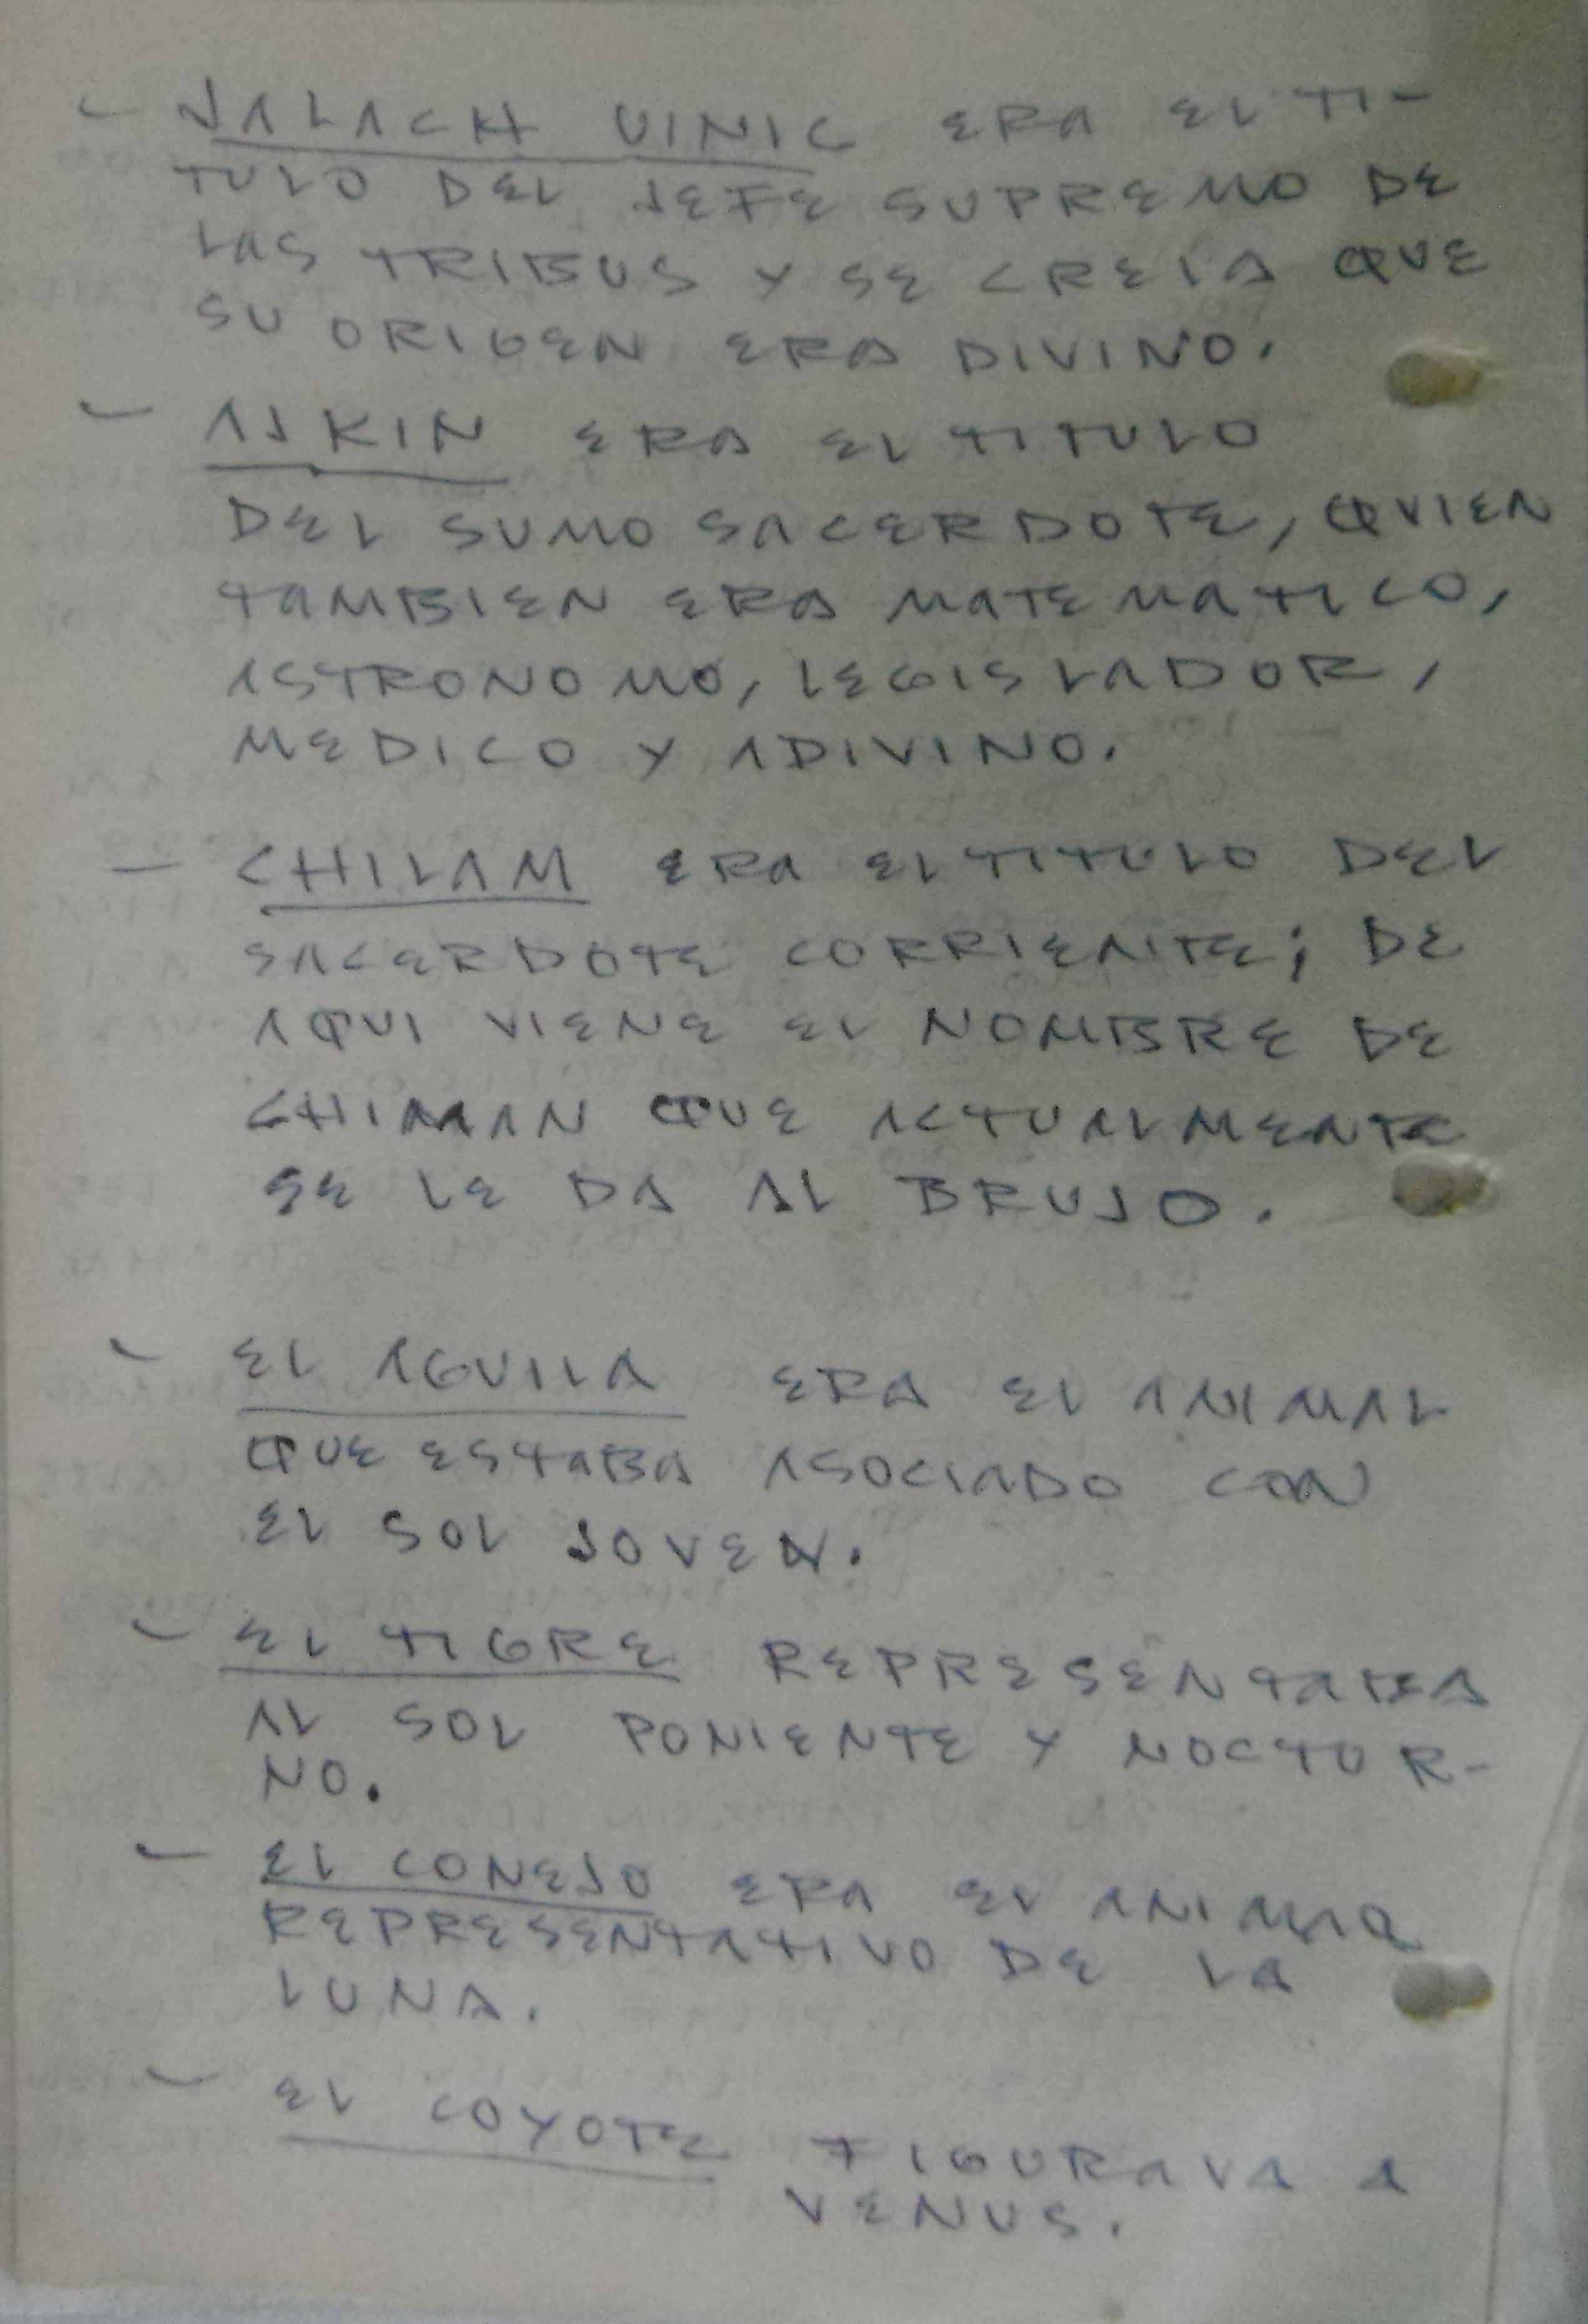 - JALACH UINIC ERA EL TI-
TULO DEL JEFE SUPREMO DE
LAS TRIBUS Y SE CREIA QUE
SU ORIGEN ERA DIVINO.
- AJKIN ERA EL TITULO
DEL SUMO SACERDOTE, QUIEN
TAMBIEN ERA MATEMATICO,
ASTRONOMO, LEGISLADOR,
MEDICO Y ADIVINO.
- CHILAM ERA EL TITULO DEL
SACERDOTE CORRIENTE; DE
AQUI VIENE EL NOMBRE DE
CHIMAN QUE ACTUALMENTE
SE LE DA AL BRUJO.
- EL AGUILA ERA EL ANIMAL
QUE ESTABA ASOCIADO CON
EL SOL JOVEN.
- EL TIGRE REPRESENTABA
AL SOL PONIENTE Y NOCTUR-
NO.
- EL CONEJO ERA EL ANIMAL
REPRESENTATIVO DE LA
LUNA.
- EL COYOTE FIGURAVA A
VENUS.